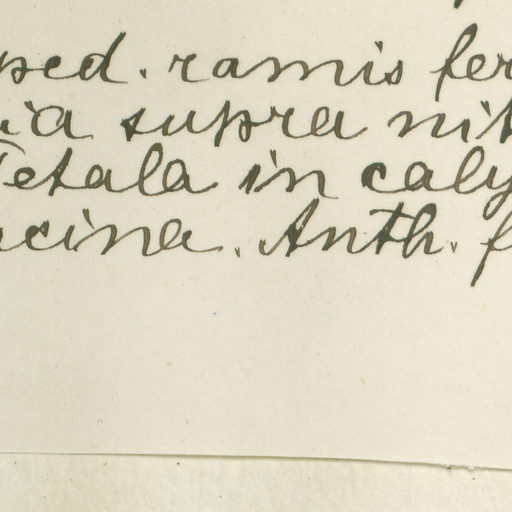 ped. ramis fer
ia supra nit
Petala in caly
cina. Anth. f